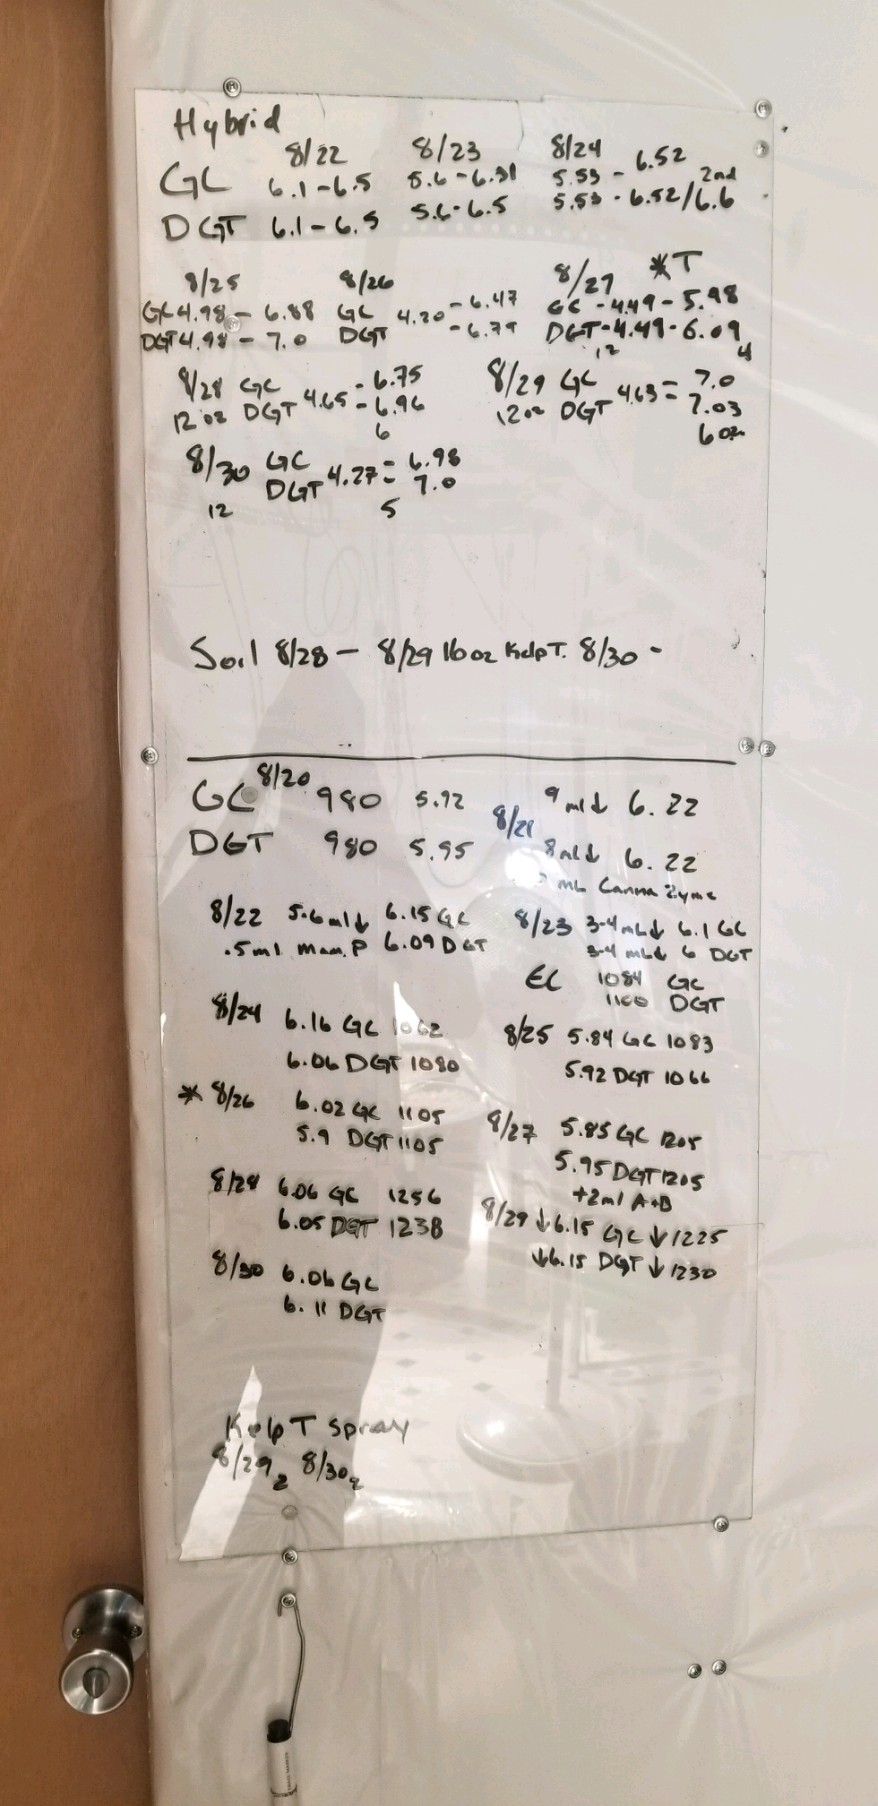 Hybrid
8/22 8/23 8/24
GC 6.1-6.5 5.6-6.31 5.53 - 6.52
DGT 6.1-6.5 5.6-6.5 5.53 - 6.52/6.6 2nd
8/25 8/26 8/27 *T
GC 4.98 - 6.88 GC 4.20 - 6.47 GC - 4.49 - 5.98
DGT 4.98 - 7.0 DGT - 6.79 DGT - 4.49 - 6.09
12 4
8/28 GC 4.65 - 6.75 8/29 GC 4.63 - 7.0
12 oz DGT - 6.96 12oz DGT - 7.03
6 6oz
8/30 GC 4.27 - 6.98
DGT - 7.0
12 5
Soil 8/28 - 8/29 16oz Kelp T. 8/30 -
GC 8/20 980 5.92 8/21 9 ml↓ 6.22
DGT 980 5.95 8ml↓ 6.22
mL Canna Zyme
8/22 5.6ml↓ 6.15 GC 8/23 3-4 mL↓ 6.1 GC
.5ml Mam. P 6.09 DGT 3-4 mL↓ 6 DGT
EC 1084 GC
1100 DGT
8/24 6.16 GC 1062 8/25 5.84 GC 1083
6.06 DGT 1080 5.92 DGT 1066
* 8/26 6.02 GC 1105 8/27 5.85 GC 1205
5.9 DGT 1105 5.95 DGT 1205
+2ml A+B
8/28 6.06 GC 1256 8/29 ↓6.15 GC ↓1225
6.05 DGT 1238 ↓6.15 DGT ↓1230
8/30 6.06 GC
6.11 DGT
Kelp T Spray
8/29 2 8/30 2